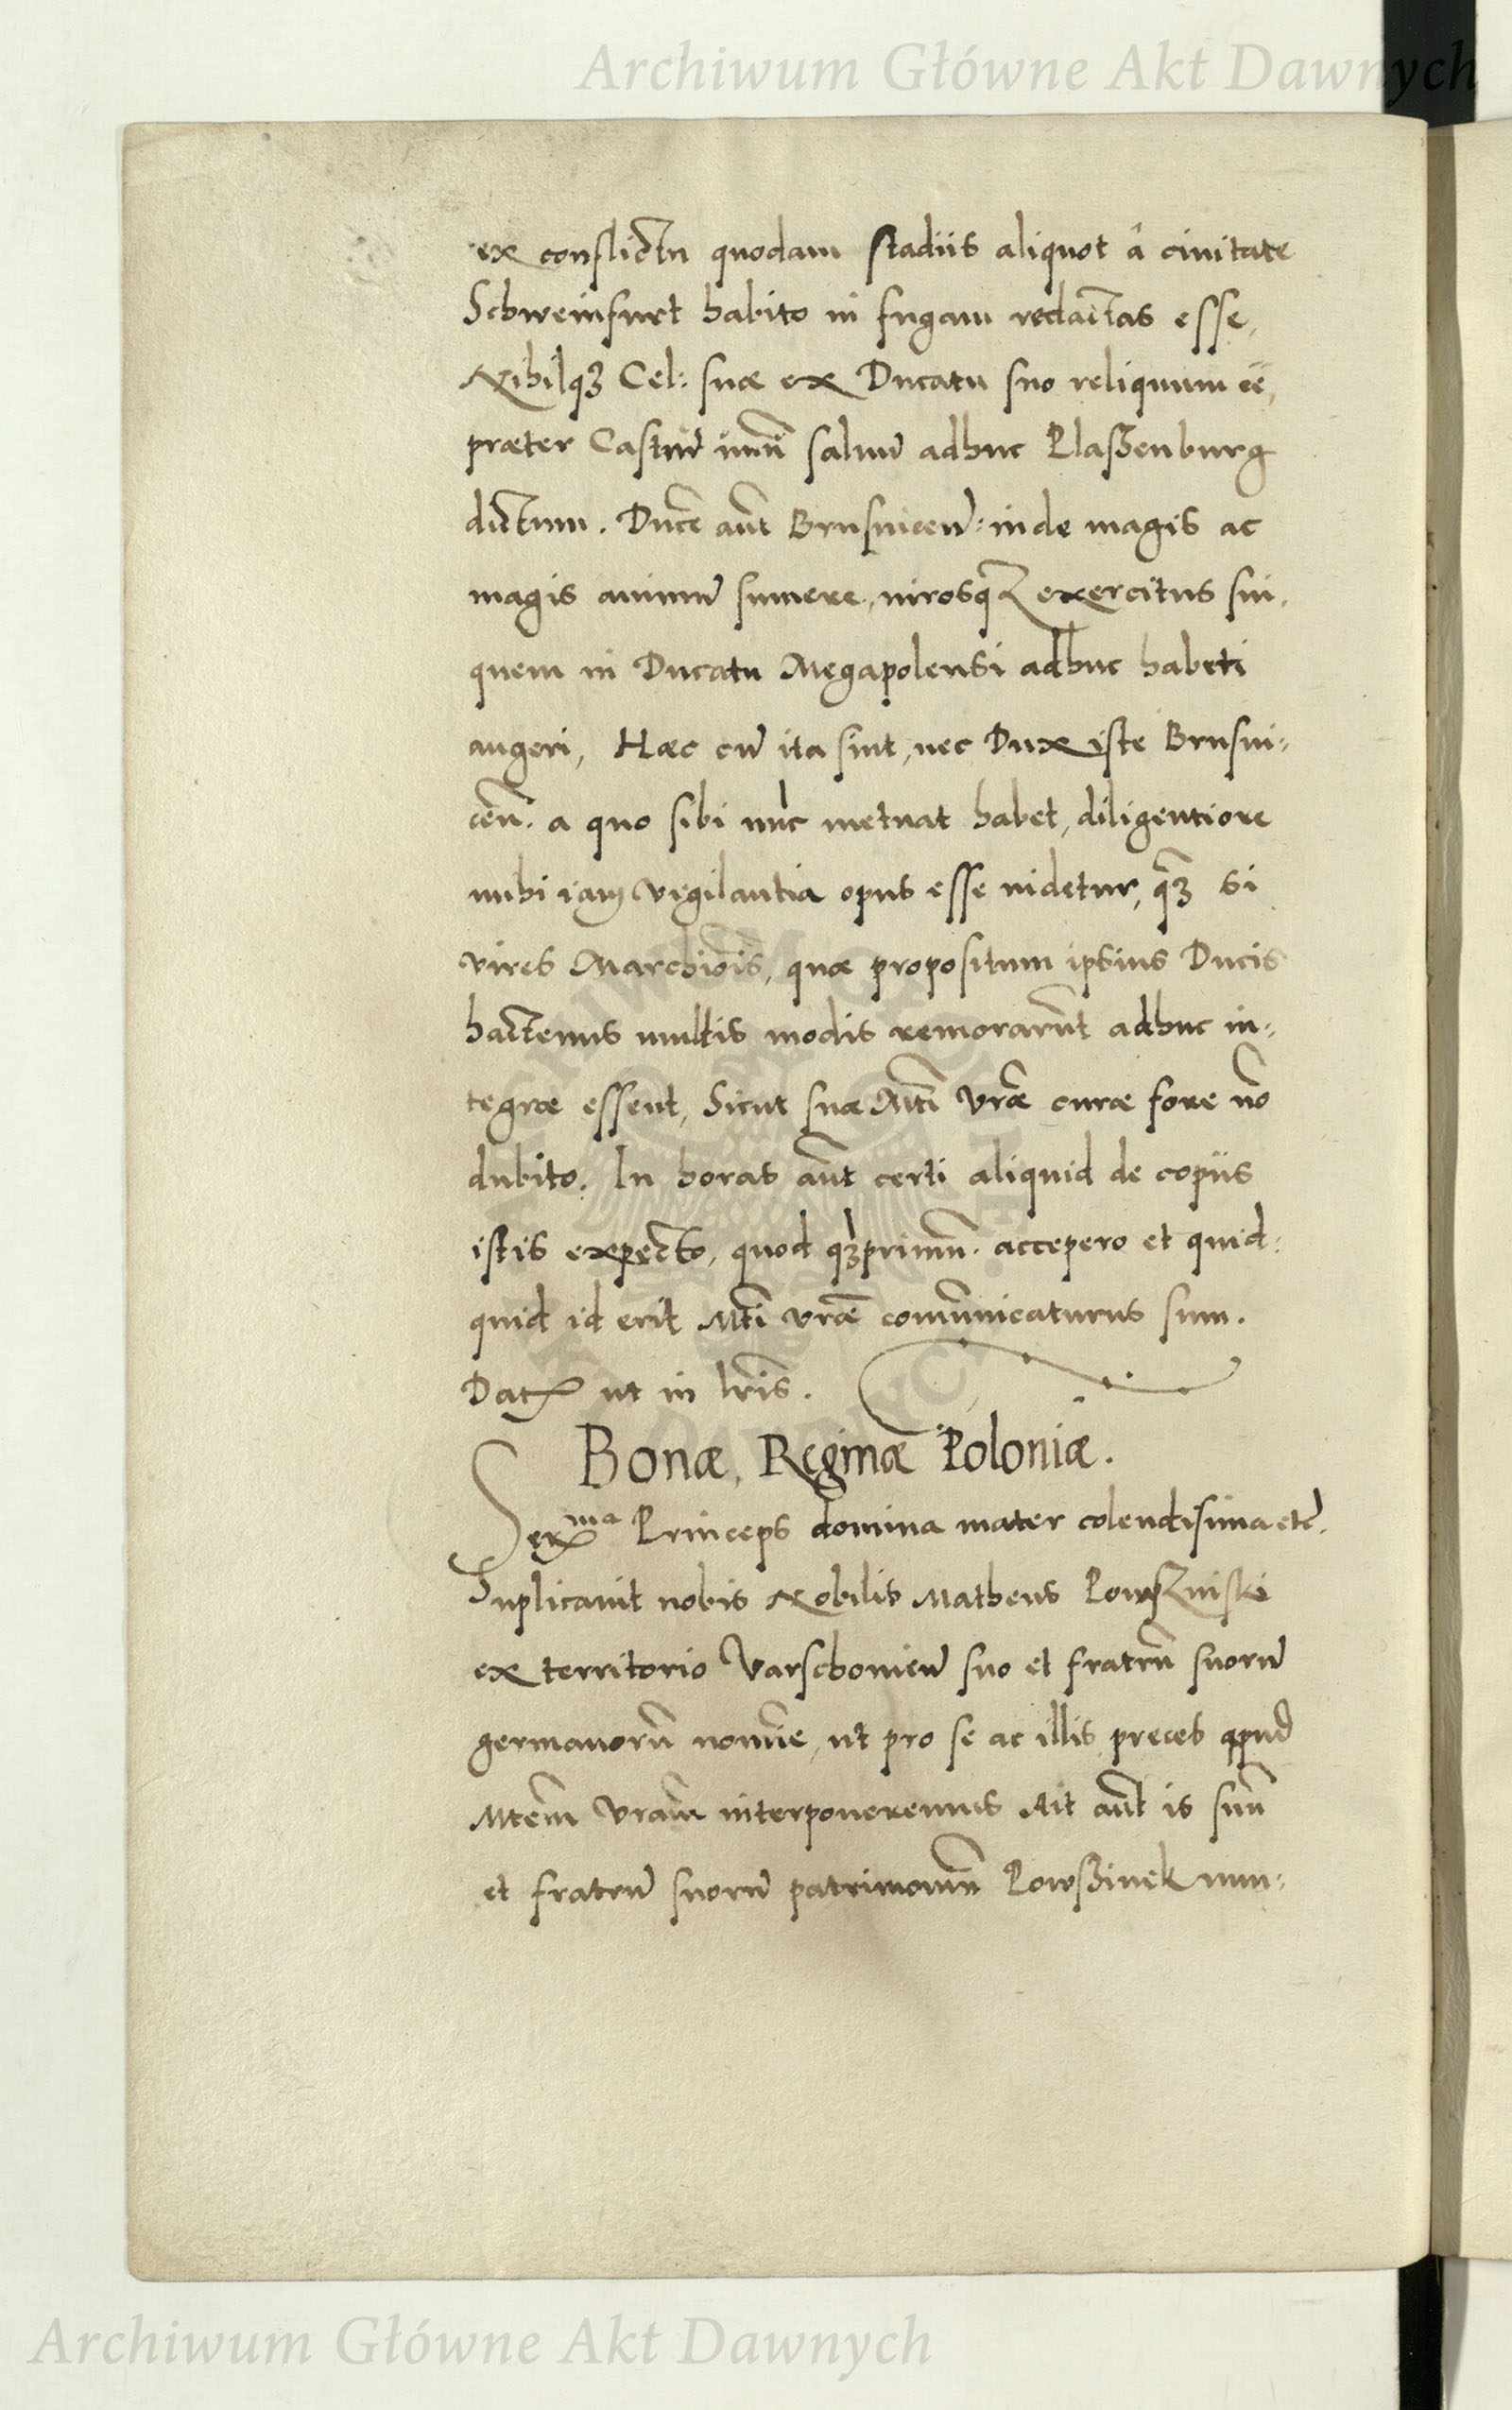 Archiwum Główne Akt Dawnych
ex conflictu quodam stadiis aliquot â ciuitate
Schweinfurt habito in fugam redactas esse,
Nihilqꝫ Cel: suæ ex Ducatu suo reliquum eē,
præter Castrū unū saluū adhuc Plasßenburg
dictum. Ducē aūt Brusuicēn: inde magis ac
magis animū sumere, uirosqꝫ exercitus sui,
quem in Ducatu Megapolensi adhuc habeti
augeri, Hæc cū ita sint, nec Dux iste Brusui-
cēn. a quo sibi nūc metuat habet, diligentiore
mihi iam vigilantia opus esse uidetur, q̄ꝫ si
vires Marchiōis, quæ propositum ipsius Ducis
hactenus multis modis remorarūt adhuc in-
tegræ essent, Sicut suæ Mti vræ curæ fore nō
dubito. In horas aūt certi aliquid de copiis
istis expecto, quod qꝫprimū accepero et quid-
quid id erit Mti vræ comūnicaturus sum.
Datꝭ ut in lris.
Bonæ, Reginæ Poloniæ.
Serma Princeps domina mater colendisima etc.
Suplicauit nobis Nobilis Matheus
ex territorio Varschouien̄ suo et fratrū suorū
germanorū nomīe, ut pro se ac illis preces apud
Mtem vram interponeremus Ait aūt is suū
et fratrū suorū patrimoniū Powßinek nun-
Archiwum Główne Akt Dawnych